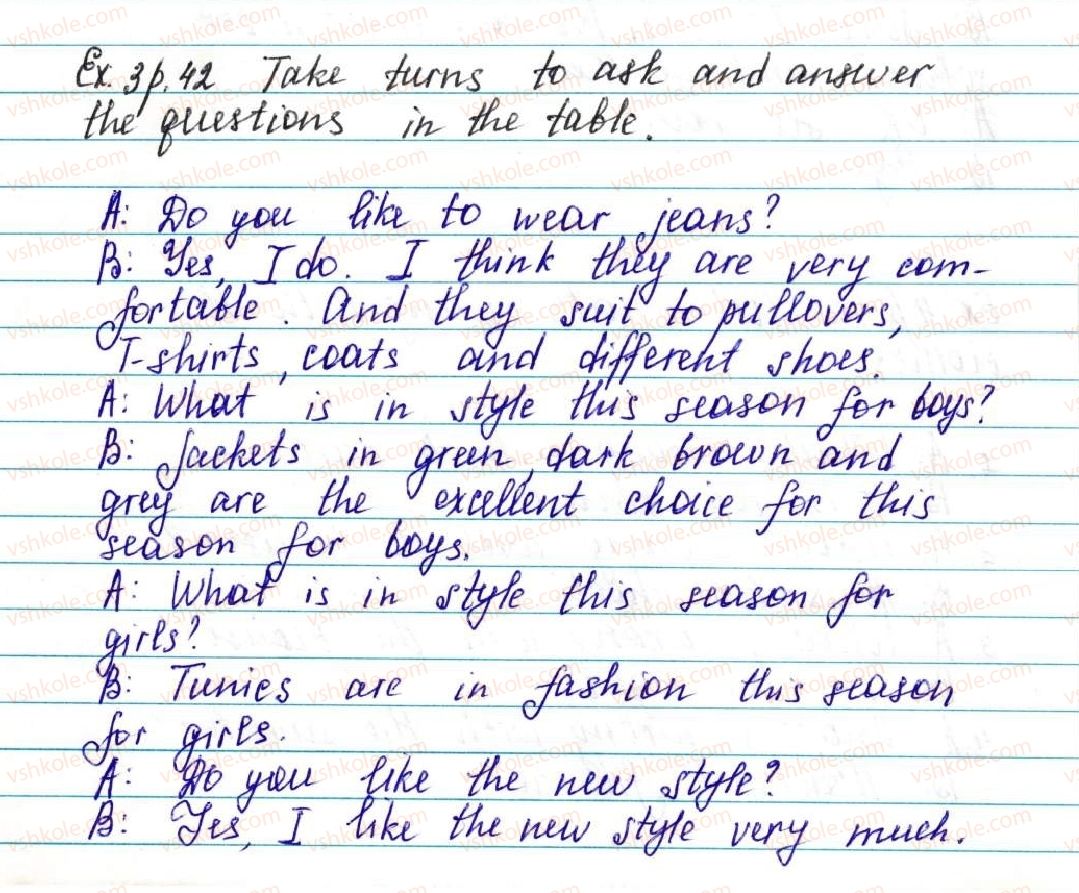 Ex. 3 p. 42 Take turns to ask and answer
the questions in the table.
A: Do you like to wear jeans?
B: Yes, I do. I think they are very com-
fortable. And they suit to pullovers,
T-shirts, coats and different shoes.
A: What is in style this season for boys?
B: Jackets in green, dark brown and
grey are the excellent choice for this
season for boys.
A: What is in style this season for
girls?
B: Tunics are in fashion this season
for girls.
A: Do you like the new style?
B: Yes, I like the new style very much.
vshkole.com